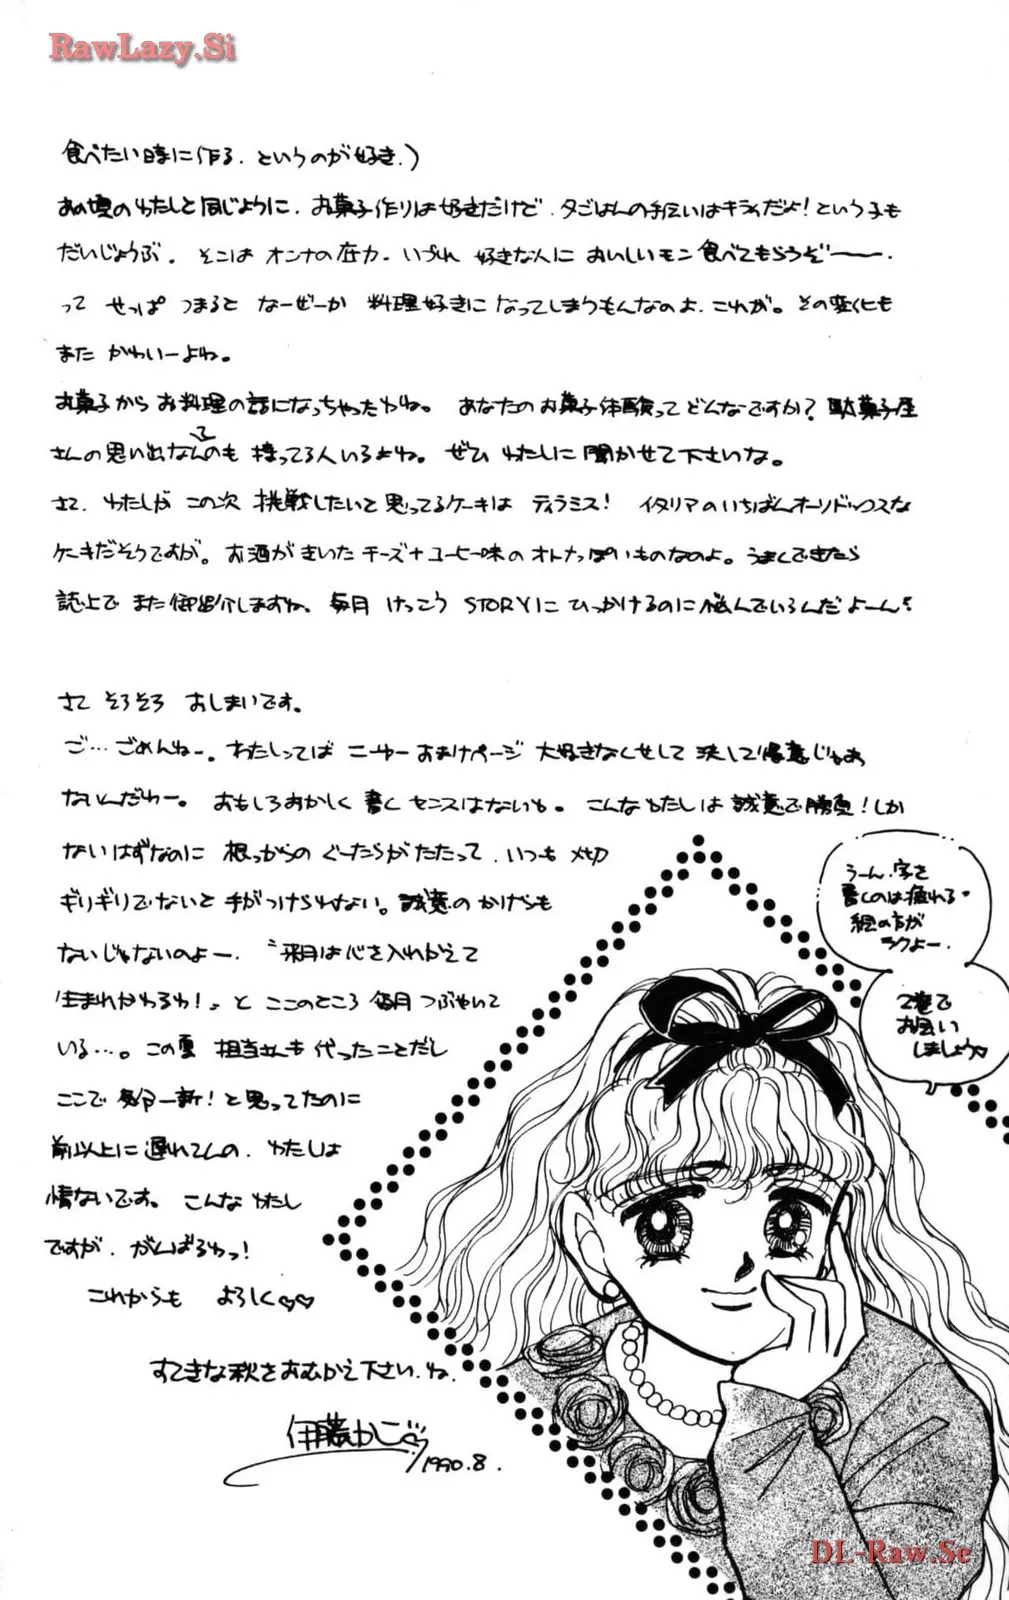 RawLazy.Si
食べたい時に作る、というのが好き。)
あの頃のわたしと同じように、お菓子作りは好きだけど、夕ごはんの手伝いはキライだよ!という子も
だいじょうぶ。そこはオンナの底力、いづれ 好きな人に おいしいモン食べてもらうぞーーー、
って せっぱ つまると なーぜーか 料理好きに なってしまうもんなのよ、これが。その変化も
また かわいーよね。
お菓子から お料理の話になっちゃったわね。 あなたのお菓子体験って どんなですか? 駄菓子屋
さんの思い出なんてのも 持ってる人いるよね。ぜひ わたしに聞かせて下さいな。
さて、わたしが この次 挑戦したいと思ってるケーキは ティラミス! イタリアのいちばんオーソドックスな
ケーキだそうですが。お酒がきいた チーズ+コーヒー味の オトナっぽいものなのよ。うまくできたら
誌上で また御紹介しますね。毎月 けっこう STORYに ひっかけるのに 悩んでいるんだよーん。
さて そろそろ おしまいです。
ご…ごめんねー。わたしってば こーゆー おまけページ 大好きなくせして 決して得意じゃあ
ないんだわー。おもしろおかしく 書く センスはないし。こんな わたしは 誠意で勝負!しか
ないはずなのに 根っからの ぐーたらがたたって、いつも 〆切
ギリギリでないと 手がつけられない。誠意の かけらも
ないじゃないのよー、"来月は心を入れかえて
生まれかわるわ!"と ここのところ 毎月 つぶやいて
いる…。この夏 担当さんも 代ったことだし
ここで 気分一新!と思ってたのに
前以上に 遅れてんの、わたしは
情ないです。こんな わたし
ですが、がんばるわっ!
これからも よろしく♡♡
すてきな秋をおむかえ下さい、ね。
伊藤かこ
1990.8.
うーん、字を
書くのは疲れる・
絵の方が
ラクよー、
2巻で
お会い
しましょう♡
DL-Raw.Se